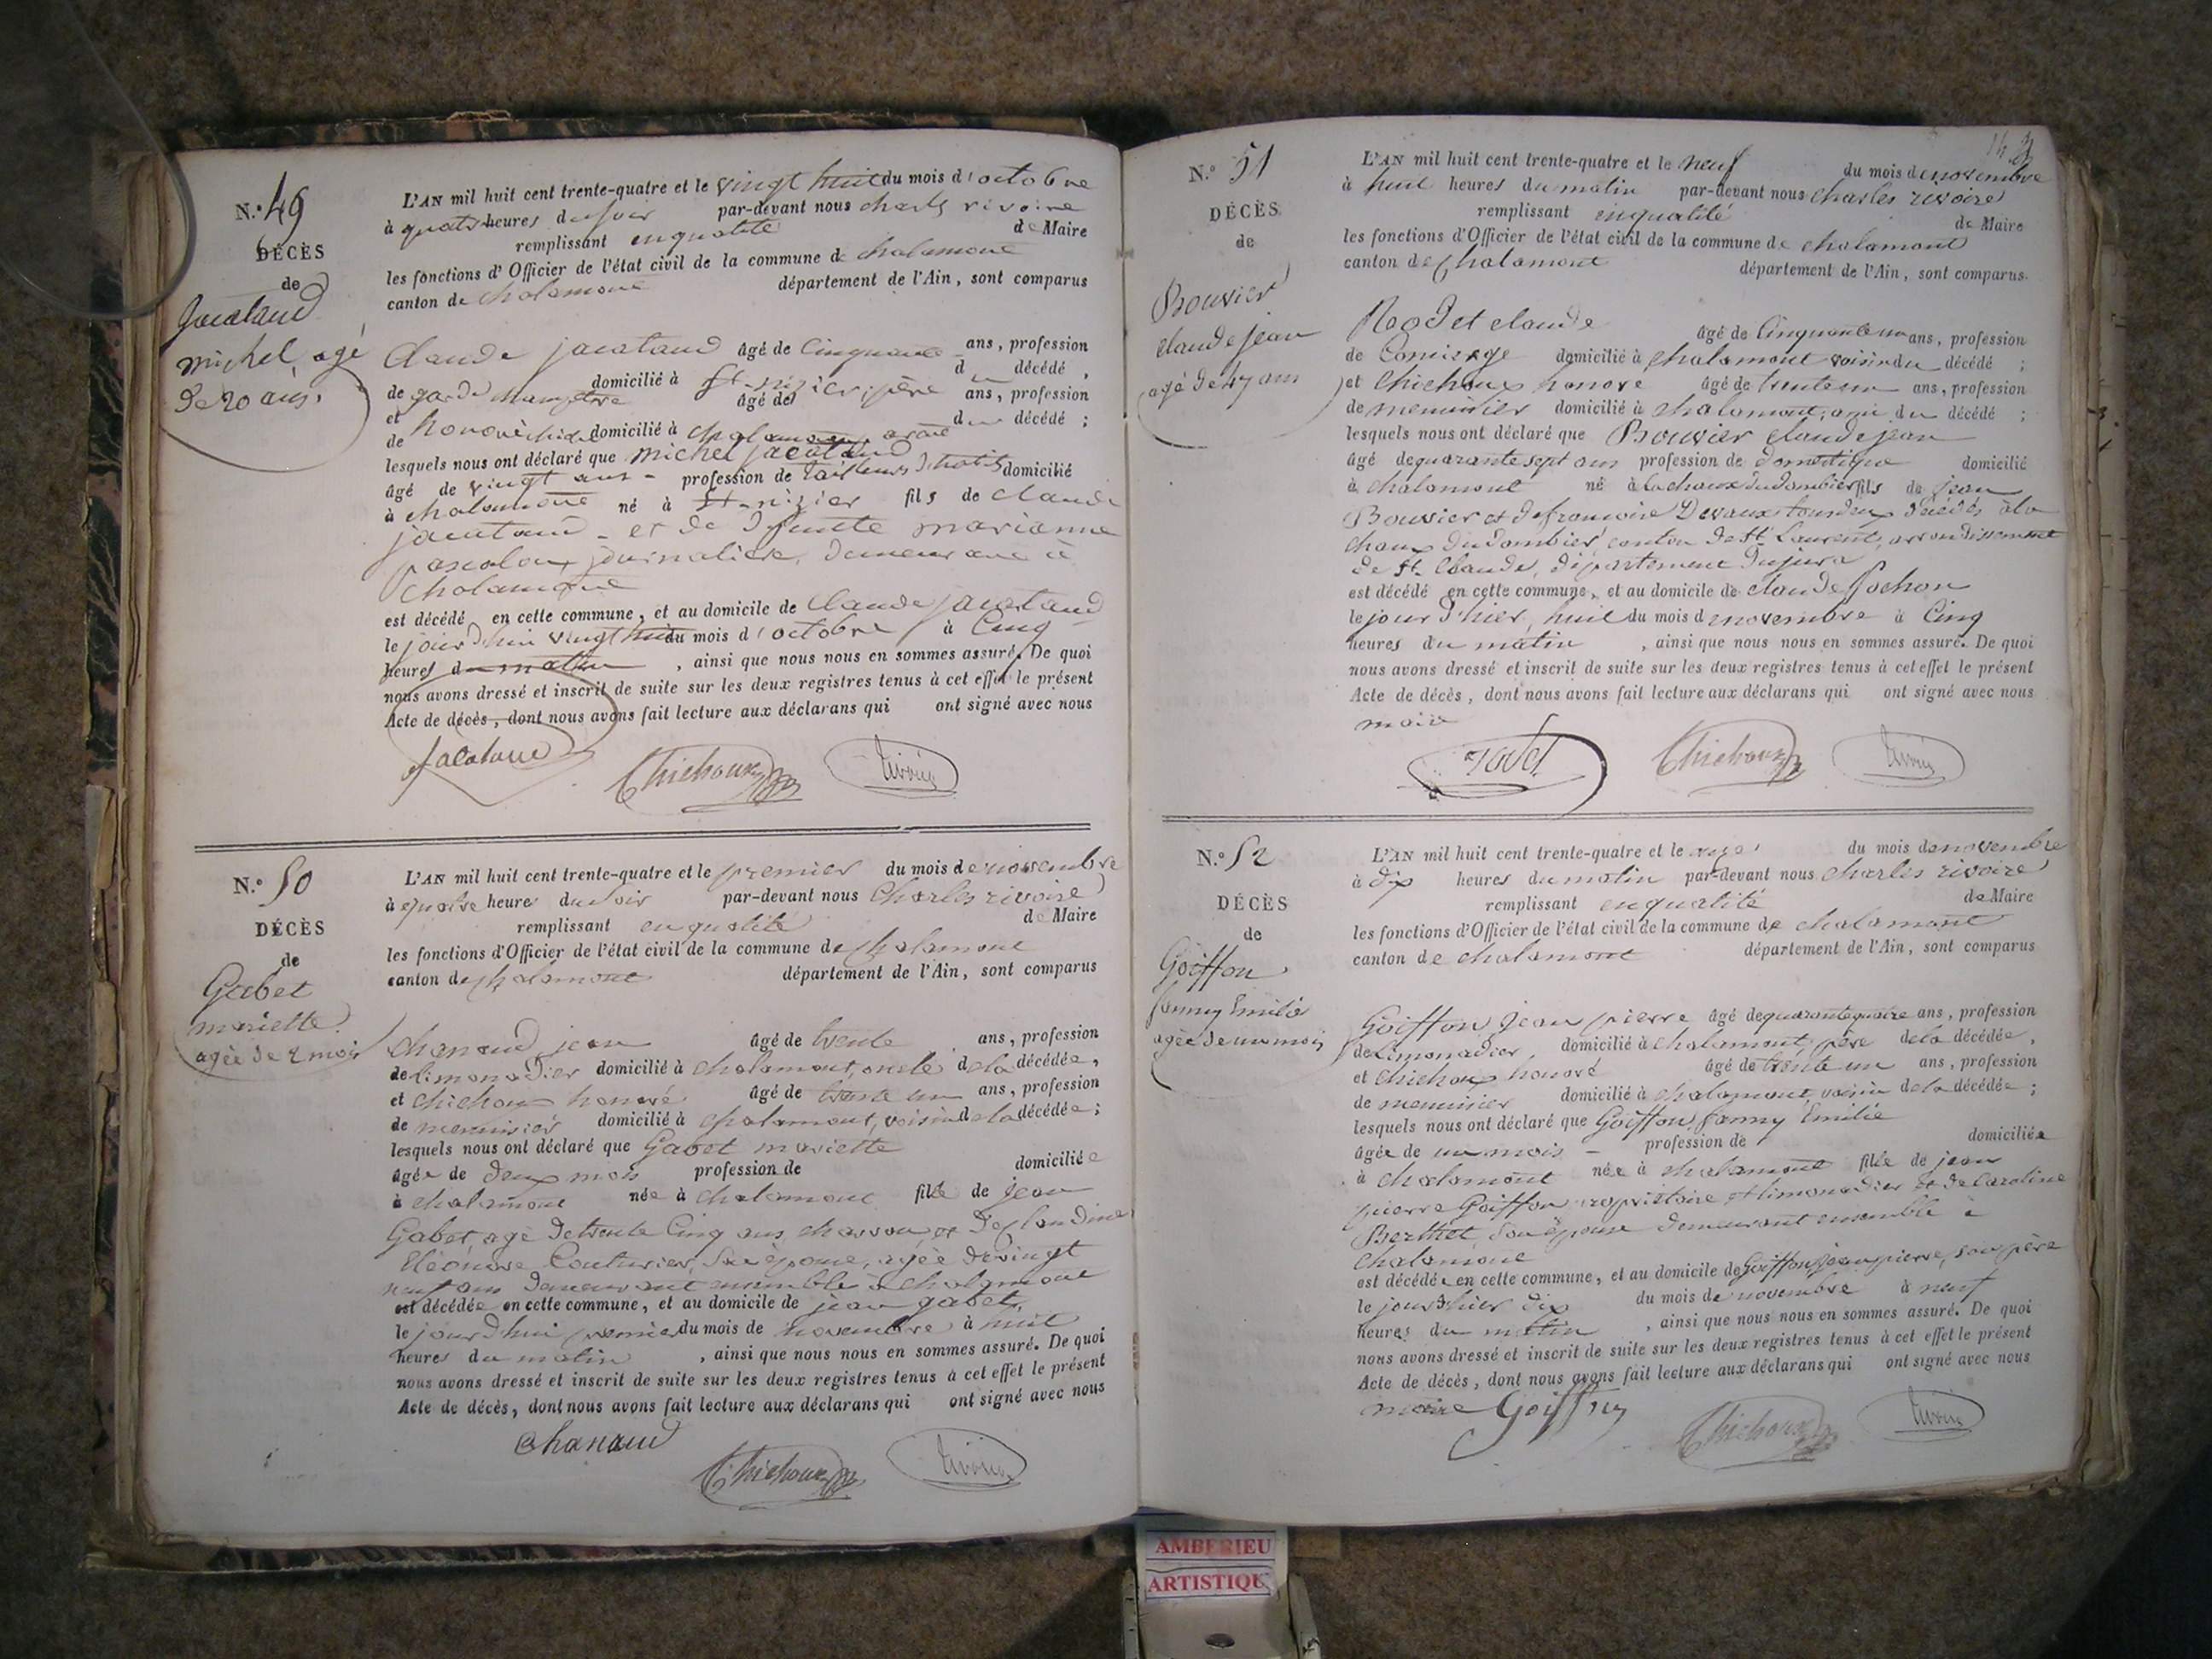 N.º 49
DÉCÈS
de
Jacataud
michel, agé
de 20 ans.
L'AN mil huit cent trente-quatre et le vingt huit du mois d'octobre
à quatre heures du soir par-devant nous charles rivoire
remplissant en qualité de Maire
les fonctions d'Officier de l'état civil de la commune de chalamont
canton de chalamont département de l'Ain, sont comparus
Claude jacataud âgé de Cinquante ans, profession
de garde champetre domicilié à St-nizier, père d décédé,
et âgé de ans, profession
de honoré chichoux domicilié à chalamont, du décédé;
lesquels nous ont déclaré que michel jacataud
âgé de vingt ans - profession de tailleurs d'habits domicilié
à chalamont né à St-nizier fils de claude
jacataud - et de défunte marianne
journalière, demeurant à
chalamont
est décédé en cette commune, et au domicile de Claude jacataud
le jour d'hui vingt huit du mois d'octobre à Cinq
heures du matin, ainsi que nous nous en sommes assuré. De quoi
nous avons dressé et inscrit de suite sur les deux registres tenus à cet effet le présent
Acte de décès, dont nous avons fait lecture aux déclarans qui ont signé avec nous
Jacataud Chichoux Rivoire
N.º 50
DÉCÈS
de
Gabet
mariette
agée de 2 mois
L'AN mil huit cent trente-quatre et le premier du mois de novembre
à quatre heures du soir par-devant nous Charles rivoire
remplissant en qualité de Maire
les fonctions d'Officier de l'état civil de la commune de chalamont
canton de chalamont département de l'Ain, sont comparus
chanaud jean âgé de trente ans, profession
de limonadier domicilié à chalamont, oncle de la décédée,
et chichoux honoré âgé de trente un ans, profession
de menuisier domicilié à chalamont, voisin de la décédée;
lesquels nous ont déclaré que Gabet mariette
âgée de deux mois profession de domiciliée
à chalamont née à chalamont fille de jean
Gabet, agé de trente Cinq ans, charron et de claudine
Eléonore Couturier, son épouse, agée de vingt
neuf ans demeurant ensemble à chalamont
est décédée en cette commune, et au domicile de jean gabet,
le jour d'hui premier du mois de novembre à huit
heures du matin, ainsi que nous nous en sommes assuré. De quoi
nous avons dressé et inscrit de suite sur les deux registres tenus à cet effet le présent
Acte de décès, dont nous avons fait lecture aux déclarans qui ont signé avec nous
Chanaud
Chichoux Rivoire
N.º 51
DÉCÈS
de
Bouvier
claude jean
agé de 47 ans
L'AN mil huit cent trente-quatre et le neuf du mois de novembre
à huit heures du matin par-devant nous Charles rivoire
remplissant en qualité de Maire
les fonctions d'Officier de l'état civil de la commune de chalamont
canton de chalamont département de l'Ain, sont comparus
Rodet claude âgé de Cinquante un ans, profession
de Concierge domicilié à chalamont voisin du décédé;
et Chichoux honore âgé de trente un ans, profession
de menuisier domicilié à chalamont, ami du décédé;
lesquels nous ont déclaré que Bouvier claude jean
âgé de quarante sept ans profession de domestique domicilié
à chalamont né à la chaux du dombier fils de jean
Bouvier et de francoise Devaux tous deux décédés à la
chaux du dombier, canton de St Laurent, arrondissement
de St. Claude, département du jura
est décédé en cette commune, et au domicile de claude Jochon
le jour d'hier, huit du mois de novembre à Cinq
heures du matin, ainsi que nous nous en sommes assuré. De quoi
nous avons dressé et inscrit de suite sur les deux registres tenus à cet effet le présent
Acte de décès, dont nous avons fait lecture aux déclarans qui ont signé avec nous
maire
Rodet Chichoux Rivoire
N.º 52
DÉCÈS
de
Goiffon
fanny Emilie
agée de un mois
L'AN mil huit cent trente-quatre et le onze du mois de novembre
à dix heures du matin par-devant nous charles rivoire
remplissant en qualité de Maire
les fonctions d'Officier de l'état civil de la commune de chalamont
canton de chalamont département de l'Ain, sont comparus
Goiffon Jean pierre âgé de quarante quatre ans, profession
de Limonadier, domicilié à chalamont, père de la décédée,
et chichoux honoré âgé de trente un ans, profession
de menuisier domicilié à chalamont, voisin de la décédée;
lesquels nous ont déclaré que Goiffon fanny Emilie
âgée de un mois - profession de domiciliée
à chalamont née à chalamont fille de jean
pierre Goiffon propriétaire et limonadier et de Caroline
Berthet son épouse demeurant ensemble à
chalamont
est décédée en cette commune, et au domicile de Goiffon jean pierre, son père
le jour d'hier dix du mois de novembre à neuf
heures du matin, ainsi que nous nous en sommes assuré. De quoi
nous avons dressé et inscrit de suite sur les deux registres tenus à cet effet le présent
Acte de décès, dont nous avons fait lecture aux déclarans qui ont signé avec nous
maire Goiffon
Chichoux Rivoire
AMBERIEU
ARTISTIQUE